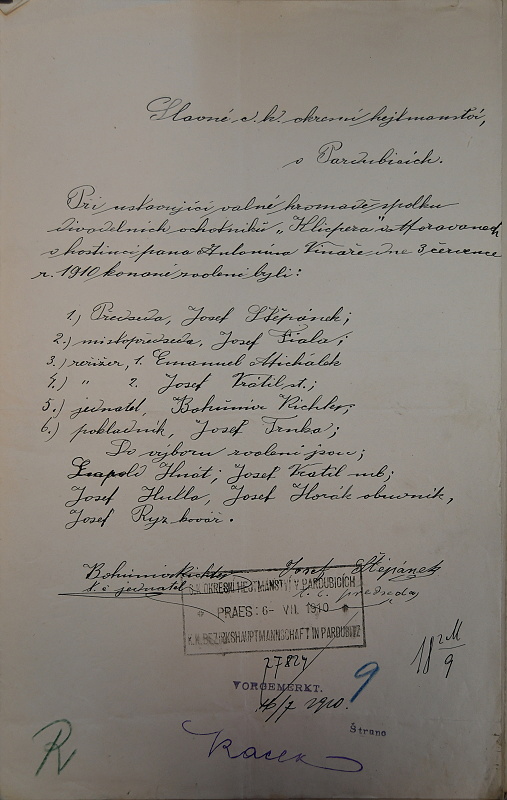 Slavné c. k. okresní hejtmanství,
v Pardubicích.
Při ustavující valné hromadě spolku
divadelních ochotníků „Klicpera" v Moravanech
v hostinci pana Antonína Vináře dne 3. července
r. 1910 konané zvoleni byli:
1.) Předseda, Josef Štěpánek;
2.) místopředseda, Josef Fiala;
3.) režizer, 1. Emanuel Michálek
4.) " 2. Josef Vrátil st.;
5.) jednatel, Bohumír Richter;
6.) pokladník, Josef Trnka;
Do výboru zvoleni jsou;
Leopold Hnát; Josef Vratil ml;
Josef Hulla, Josef Horák obuvník,
Josef Ryz kovář.
Bohumír Richter Josef Štěpánek
t. č. jednatel t. č. předseda
C.K. OKRESNÍ HEJTMANSTVÍ V PARDUBICÍCH
PRAES: 6- VII. 1910
K.K. BEZIRKSHAUPTMANNSCHAFT IN PARDUBITZ
27824
18
9
VORGEMERKT.
9
16/7 1910.
Strana
R
Kacek